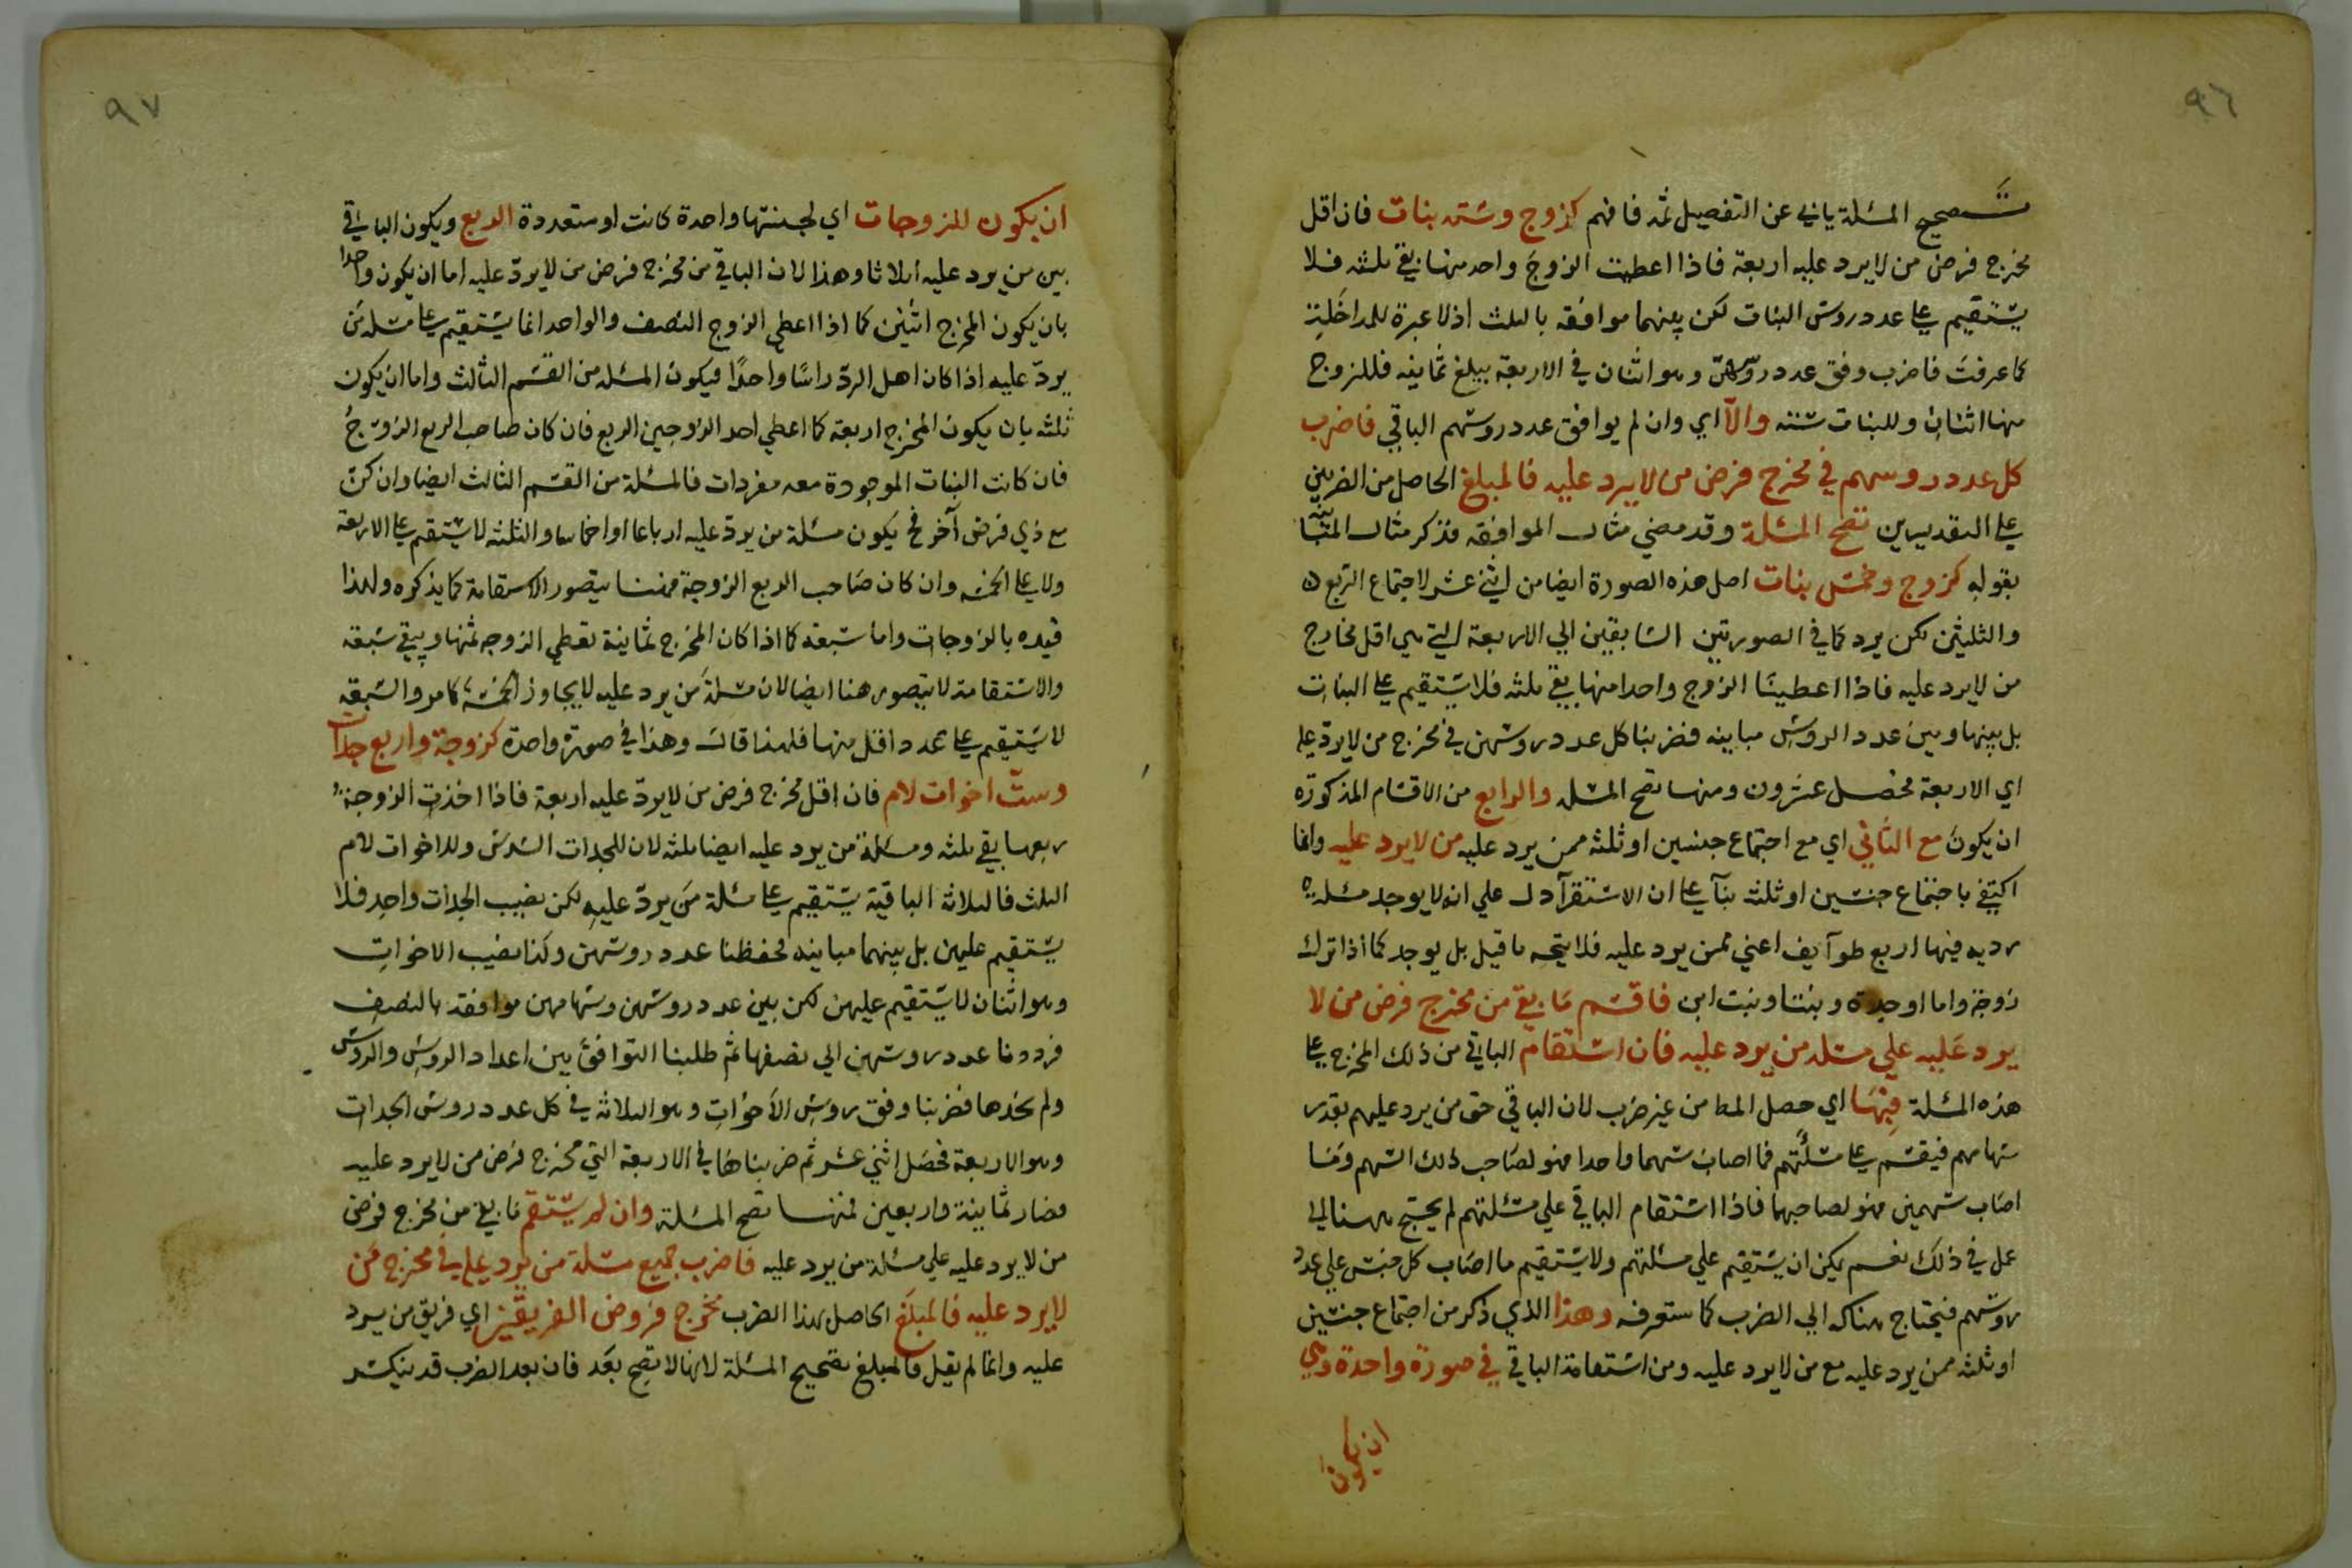 ٩٦
تصحيح المسئلة ياتي عن التفصيل ثمه فافهم كزوج وسته بنات فان اقل
مخرج فرض من لا يرد عليه اربعة فاذا اعطيت الزوج واحد منها بقي ثلثه فلا
يستقيم على عدد روس البنات لكن بينهما موافقه بالثلث اذ لا عبرة للمداخلة
كما عرفت فاضرب وفق عدد روسهن وهو اثنان في الاربعة يبلغ ثمانيه فللزوج
منها اثنان وللبنات ستته والا اي وان لم يوافق عدد روسهم الباقي فاضرب
كل عدد روسهم في مخرج فرض من لا يرد عليه فالمبلغ الحاصل من الضربين
على التقديرين تصح المسئلة وقد مضي مثال الموافقه فذكر مثال المتباينه
بقوله كزوج وخمس بنات اصل هذه الصورة ايضا من اثني عشر لاجتماع الربع
والثلثين لكن يرد كما في الصورتين السابقين الي الاربعة التي هي اقل مخارج
من لا يرد عليه فاذا اعطينا الزوج واحدا منها يبقي ثلثه فلا يستقيم على البنات
بل بينها وبين عدد الروس مباينه فضربنا كل عدد روسهن في مخرج من لا يرد عليه
اي الاربعة فحصل عشرون ومنها تصح المسئله والرابع من الاقسام المذكورة
ان يكون مع الثاني اي مع اجتماع جنسين او ثلثه ممن يرد عليه من لا يرد عليه وانما
اكتفي باجتماع جنسين او ثلثه بنآ على ان الاستقرآ دل علي انه لا يوجد مسئله
رديه فيها اربع طوآيف اعني ممن يرد عليه فلا يتجه ما قيل بل يوجد كما اذا ترك
زوجة واما او جدة وبنتا وبنت ابن فاقسم ما بقي من مخرج فرض من لا
يرد عليه علي مسئله من يرد عليه فان استقام الباقي من ذلك المخرج على
هذه المسئلة فبها اي حصل المط من غير ضرب لان الباقي حق من يرد عليهم بقدر
سهامهم فيقسم على مسئلتهم فما اصاب سهما واحدا فهو لصاحب ذلك السهم وما
اصاب سهمين فهو لصاحبهما فاذا استقام الباقي علي مسئلتهم لم يحتج ههنا الي
عمل في ذلك نعم يمكن ان يستقيم علي مسئلتهم ولا يستقيم ما اصاب كل جنس علي عدد
روسهم فيحتاج هناك الي الضرب كما ستعرفه وهذا الذي ذكر من اجتماع جنسين
او ثلثه ممن يرد عليه مع من لا يرد عليه ومن استقامة الباقي في صورة واحدة وهي
ان يكون
٩٧
ان يكون للزوجات اي لجنسها واحدة كانت او متعددة الربع ويكون الباقي
بين من يرد عليه اثلاثا وهذا لان الباقي من مخرج فرض من لا يرد عليه اما ان يكون واحدا
بان يكون المخرج اثنين كما اذا اعطي الزوج النصف والواحد انما يستقيم على مسئله من
يرد عليه اذا كان اهل الرد راسا واحدا فيكون المسئله من القسم الثالث واما ان يكون
ثلثه بان يكون المخرج اربعة كما اعطي احد الزوجين الربع فان كان صاحب الربع الزوج
فان كانت البنات الموجودة معه مفردات فالمسئلة من القسم الثالث ايضا وان كن
مع ذي فرض آخر فح يكون مسئلة من يرد عليه ارباعا او اخماسا والثلثه لا يستقيم على الاربعة
ولا على الخمسه وان كان صاحب الربع الزوجة فههنا يتصور الاستقامة كما يذكره ولهذا
قيده بالزوجات واما سبعه كما اذا كان المخرج ثمانية تعطي الزوجه ثمنها ويبقي سبعه
والاستقامة لا يتصور هنا ايضا لان مسئلة من يرد عليه لا يجاوز الخمسه كما مر والسبعه
لا يستقيم على عدد اقل منها فلهذا قال وهذا في صورة واحدة كزوجة واربع جدات
وست اخوات لام فان اقل مخرج فرض من لا يرد عليه اربعة فاذا اخذت الزوجة
ربعها بقي ثلثه ومسئلة من يرد عليه ايضا ثلثه لان للجدات السدس وللاخوات لام
الثلث فالثلاثة الباقية يستقيم على مسئلة من يرد عليه لكن نصيب الجدات واحد فلا
يستقيم عليهن بل بينهما مباينه فحفظنا عدد روسهن وكذا نصيب الاخوات
وهو اثنان لا يستقيم عليهن لكن بين عدد روسهن وسهامهن موافقة بالنصف
فرددنا عدد روسهن الي نصفها ثم طلبنا التوافق بين اعداد الروس والروس
ولم نجدها فضربنا وفق روس الاخوات وهو الثلاثه في كل عدد روس الجدات
وهو الاربعة فحصل اثني عشر ثم ضربناها في الاربعة التي مخرج فرض من لا يرد عليه
فصار ثمانية واربعين فمنها تصح المسئلة وان لم يستقم ما بقي من مخرج فرض
من لا يرد عليه علي مسئلة من يرد عليه فاضرب جميع مسئلة من يرد عليه في مخرج من
لا يرد عليه فالمبلغ الحاصل بهذا الضرب مخرج فروض الفريقين اي فريق من يرد
عليه وانما لم يقل فالمبلغ تصحيح المسئلة لانها لا تصح بعد فان بعد الضرب قد ينكسر